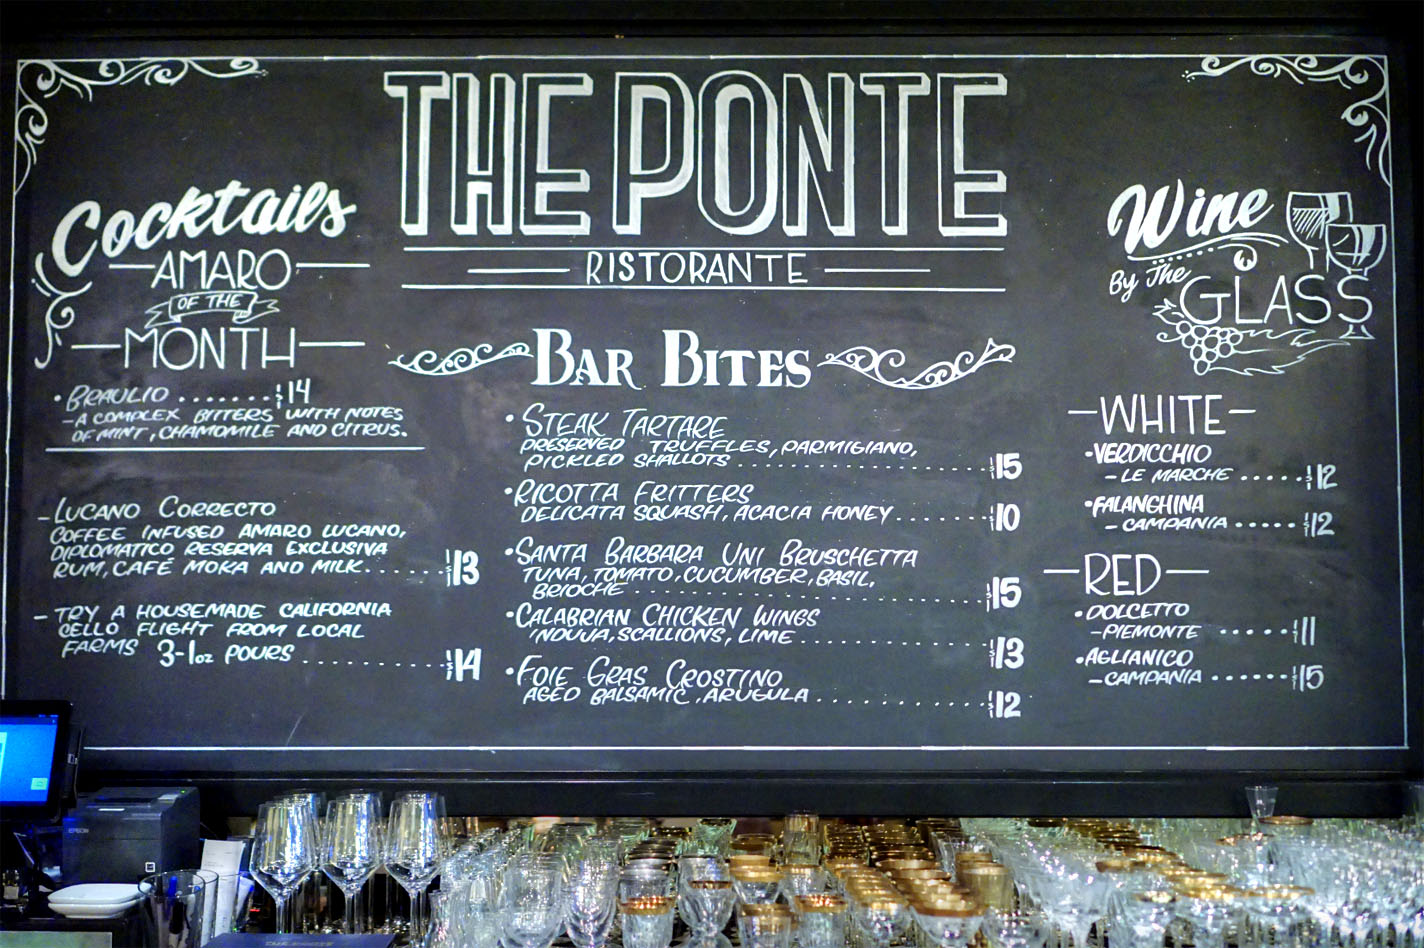 THE PONTE
RISTORANTE
Cocktails
AMARO
OF THE
MONTH
• BRAULIO . . . . . . . $14
- A COMPLEX BITTERS WITH NOTES
OF MINT, CHAMOMILE AND CITRUS.
- LUCANO CORRECTO
COFFEE INFUSED AMARO LUCANO,
DIPLOMATICO RESERVA EXCLUSIVA
RUM, CAFÉ MOKA AND MILK. . . . . . . $13
- TRY A HOUSEMADE CALIFORNIA
CELLO FLIGHT FROM LOCAL
FARMS 3-1oz POURS . . . . . . . . . . . . $14
BAR BITES
• STEAK TARTARE
PRESERVED TRUFFLES, PARMIGIANO,
PICKLED SHALLOTS . . . . . . . . . . . . . . . . . . $15
• RICOTTA FRITTERS
DELICATA SQUASH, ACACIA HONEY . . . . . . . $10
• SANTA BARBARA UNI BRUSCHETTA
TUNA, TOMATO, CUCUMBER, BASIL,
BRIOCHE . . . . . . . . . . . . . . . . . . . . . . . . $15
• CALABRIAN CHICKEN WINGS
'NDUJA, SCALLIONS, LIME . . . . . . . . . . . . . $13
• FOIE GRAS CROSTINO
AGED BALSAMIC, ARUGULA . . . . . . . . . . . . $12
Wine
By The
GLASS
- WHITE -
• VERDICCHIO
- LE MARCHE . . . . . $12
• FALANGHINA
- CAMPANIA . . . . . $12
- RED -
• DOLCETTO
- PIEMONTE . . . . . $11
• AGLIANICO
- CAMPANIA . . . . . . $15
EPSON